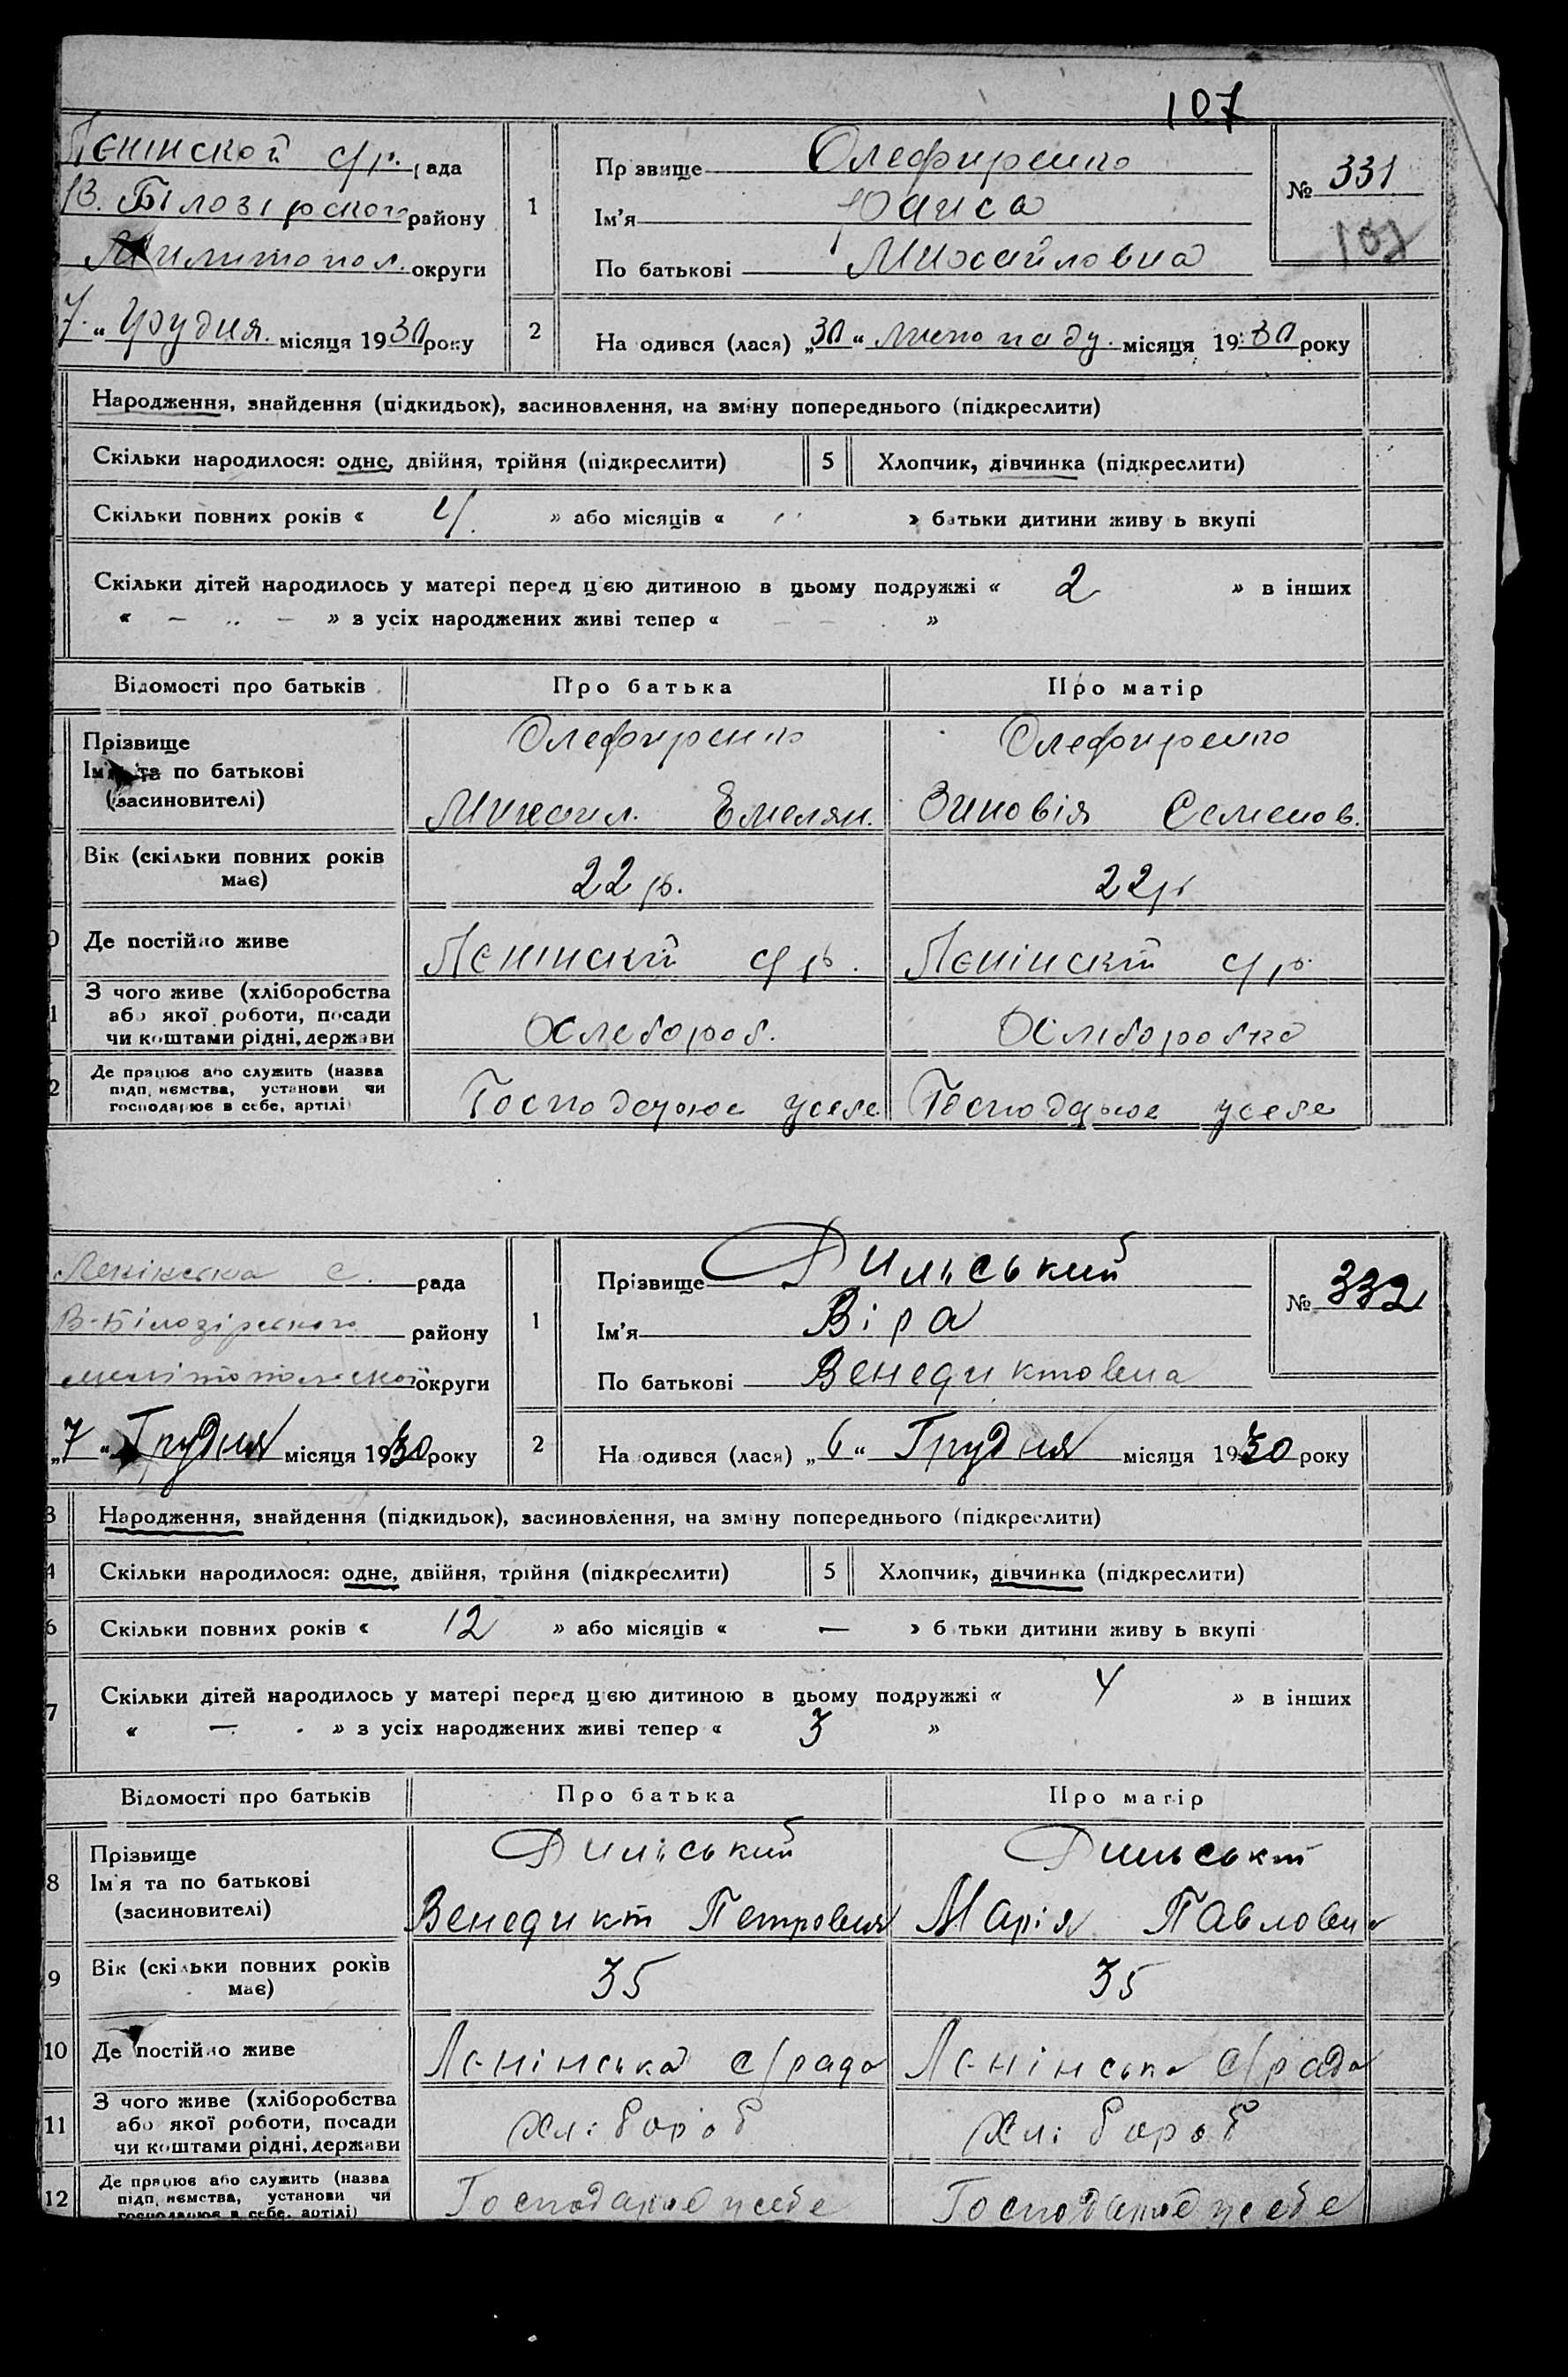 107
Ленінской с/р. рада
В. Білозірского району
Милитопол. округи
7. “ Грудня. місяця 1930 року
1
Прзвище Олефиренко
Ім’я
По батькові Михайловна
№ 331
107
2
На одився (лася) „30“ листопаду. місяця 1930 року
Народження, знайдення (підкидьок), засиновлення, на зміну попереднього (підкреслити)
Скільки народилося: одне, двійня, трійня (підкреслити)
5 Хлопчик, дівчинка (підкреслити)
Скільки повних років « 4. » або місяців « » батьки дитини живу ь вкупі
Скільки дітей народилось у матері перед цією дитиною в цьому подружжі « 2 » в інших
« – „ – » з усіх народжених живі тепер « – – »
Відомості про батьків
Про батька
Про матір
Прізвище
Ім’я та по батькові
(засиновителі)
Олефиренко
Михаил. Емелян.
Олефиренко
Зиновія Семенов.
Вік (скільки повних років
має)
22 р.
22 р
Де постійно живе
Ленінскй с/р.
Ленінскй с/р.
З чого живе (хліборобства
або якої роботи, посади
чи коштами рідні, держави
Хлебороб.
Хлеборобка
2
Де працює або служить (назва
підп, ємства, установи чи
господарює в себе, артілі)
Господарює усебе.
Господарює усебе
Ленінська с. рада
В-Білозірського району
мелітопольської округи
„7 “ Грудня місяця 1930 року
1
Прізвище Дильський
Ім’я Віра
По батькові Венедиктовна
№ 332
2
На одився (лася) „6“ Грудня місяця 1930 року
3 Народження, знайдення (підкидьок), засиновлення, на зміну попереднього (підкреслити)
4 Скільки народилося: одне, двійня, трійня (підкреслити)
5 Хлопчик, дівчинка (підкреслити)
6 Скільки повних років « 12 » або місяців « — » б тьки дитини живу ь вкупі
7 Скільки дітей народилось у матері перед цією дитиною в цьому подружжі « 4 » в інших
« — . » з усіх народжених живі тепер « 3 »
Відомості про батьків
Про батька
Про матір
8
Прізвище
Ім’я та по батькові
(засиновителі)
Дильський
Венедикт Петровия
Дильскй
Марія Павловна
9
Вік (скільки повних років
має)
35
35
10 Де постійно живе
Ленінська с/рада
Ленінська с/рада
11
З чого живе (хліборобства
або якої роботи, посади
чи коштами рідні, держави
Хлібороб
Хлібороб
12
Де працює або служить (назва
підп, ємства, установи чи
господарює в себе, артілі)
Господарює усебе
Господарює усебе